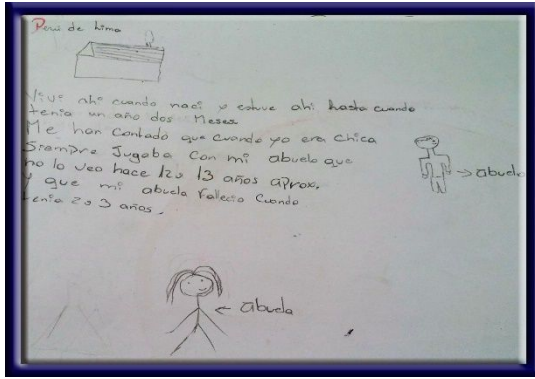 Perú de Lima
Viví ahí cuando nací y estuve ahí hasta cuando
tenia un año dos Meses
Me han Contado que cuando yo era chica
Siempre Jugaba Con mi abuelo que
no lo veo hace 12 o 13 años aprox.
Y que mi abuela Fallecio Cuando
tenia 2 o 3 años.
→ abuelo
← abuela